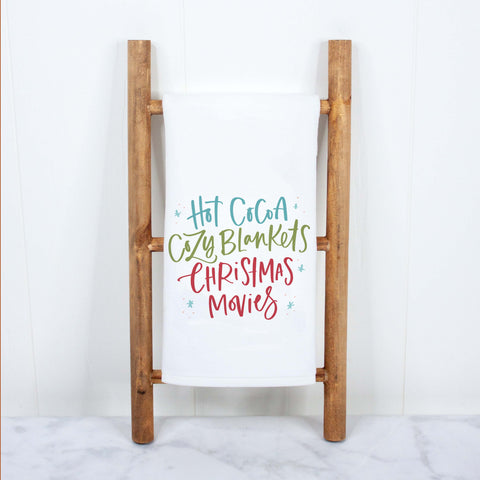 Hot Cocoa
Cozy Blankets
Christmas
Movies